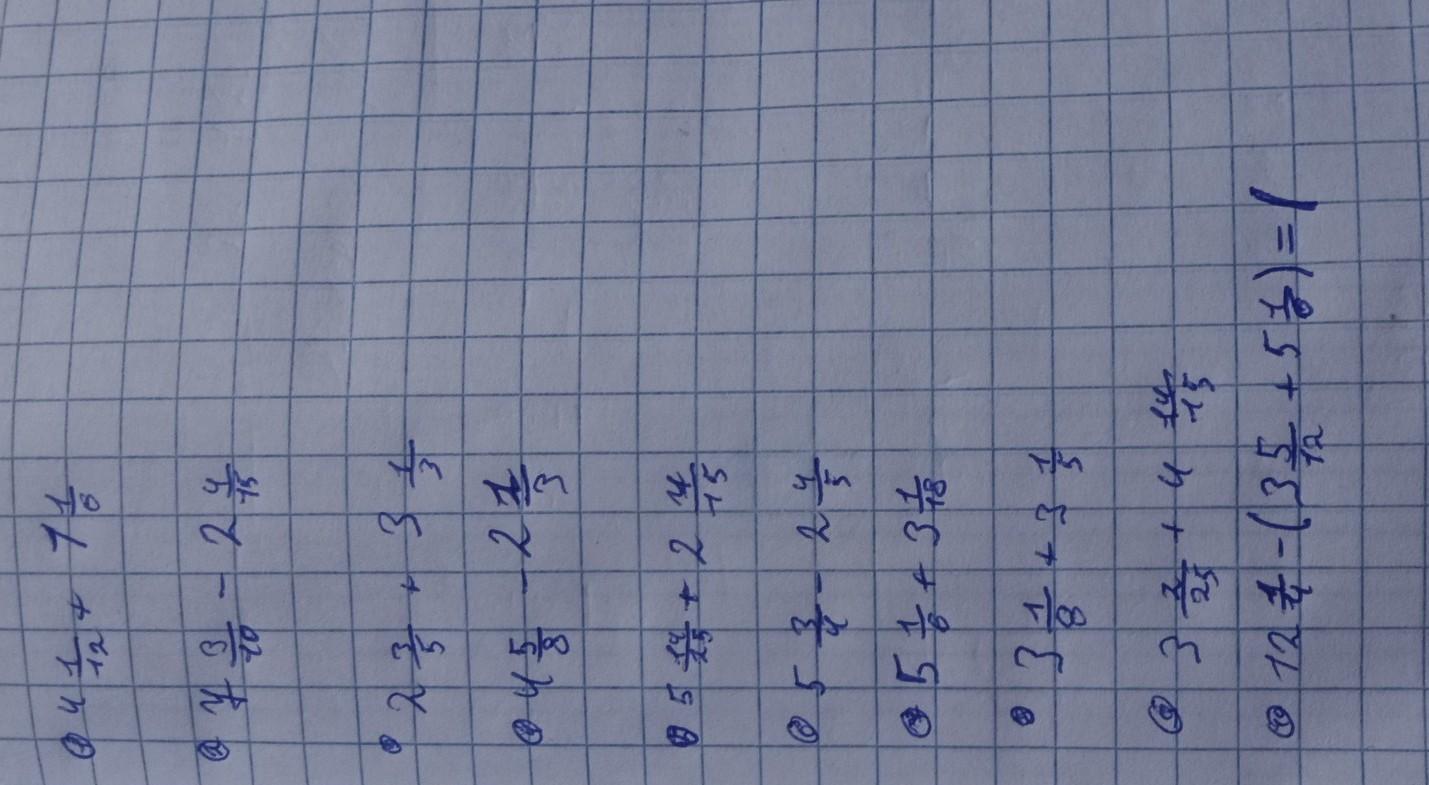 4 1/12 + 1 1/6
7 3/10 - 2 4/15
2 3/5 + 3 1/3
4 5/8 - 2 1/3
5 14/25 + 2 4/15
5 3/4 - 2 4/5
5 1/6 + 3 1/18
3 1/8 + 3 1/5
3 2/25 + 4 14/15
12 1/4 - (3 5/12 + 5 1/6) =